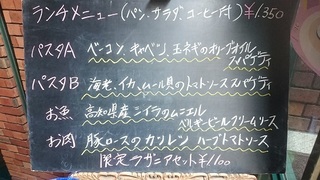 ランチメニュー(パン、サラダ、コーヒー付) ¥1,350
パスタA ベーコン、キャベツ、玉ネギのオリーブオイル
スパゲティ
パスタB 海老、イカ、ムール貝のトマトソーススパゲティ
お魚 高知県産シイラのムニエル
ベルギービールクリームソース
お肉 豚ロースのカツレツ ハーブトマトソース
限定ラザニアセット¥1100